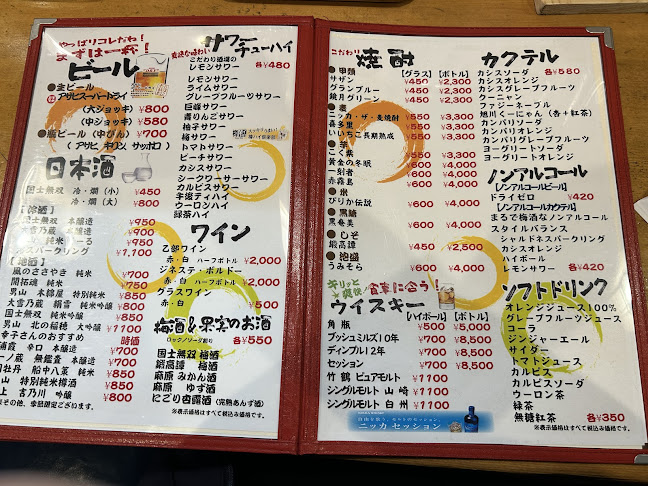 やっぱりコレだね!
まずは一杯!
ビール
●生ビール
アサヒスーパードライ
(大ジョッキ) ¥800
(中ジョッキ) ¥580
●瓶ビール (中びん) ¥700
(アサヒ キリン サッポロ)
日本酒
国士無双 冷・燗 (小) ¥450
冷・燗 (大) ¥800
国士無双 本醸造 ¥950
吉乃川 本醸造 ¥900
¥950
スパークリング ¥1100
風のささやき 純米 ¥700
開拓魂 純米 ¥700
男山 本綿屋 特別純米 ¥850
大雪乃蔵 絹雪 純米吟醸 ¥850
国士無双 純米吟醸 ¥850
男山 北の稲穂 大吟醸 ¥1100
幸子さんのおすすめ 時価
浦霞 辛口 本醸造 ¥700
一ノ蔵 無鑑査 本醸造 ¥700
司牡丹 船中八策 純米 ¥850
特別純米樽酒 ¥850
吉乃川 吟醸 ¥800
その他、季節限定ございます。
爽快な味わい
サワー
チューハイ
こだわり酒場の
レモンサワー 各¥480
レモンサワー
ライムサワー
グレープフルーツサワー
巨峰サワー
青りんごサワー
柚子サワー
梅サワー
トマトサワー
ピーチサワー
カシスサワー
シークヮーサーサワー
カルピスサワー
キ後ティハイ
ウーロンハイ
緑茶ハイ
ワイン
乙部ワイン
赤・白 ハーフボトル ¥2,000
ジネステ・ボルドー
赤・白 ハーフボトル ¥2,000
グラスワイン
赤・白 ¥500
梅酒&果実のお酒
ロック/ソーダ割り 各¥550
国士無双 梅酒
鍛高譚 梅酒
麻原 みかん酒
麻原 ゆず酒
にごり杏露酒 (完熟あんず酒)
※表示価格はすべて税込み価格です。
こだわり
焼酎
[グラス] [ボトル]
●甲類
サザン ¥450 ¥2,300
グランブルー ¥450 ¥2,300
鏡月グリーン ¥450 ¥2,300
●麦
ニッカ・ザ・麦焼酎 ¥550 ¥3,300
喜多里 ¥550 ¥3,300
いいちこ長期熟成 ¥550 ¥3,300
●芋
こく紫 ¥550 ¥3,300
黄金の冬眠 ¥600 ¥4,000
一刻者 ¥600 ¥4,000
赤霧島 ¥600 ¥4,000
●米
ぴりか伝説 ¥600 ¥4,000
●黒糖
黒奄美 ¥600 ¥4,000
●しそ
鍛高譚 ¥450 ¥2,500
●泡盛
うみそら ¥600 ¥4,000
キリッと爽快
食事に合う!
ウイスキー
[ハイボール] [ボトル]
角瓶 ¥500 ¥5,000
ブッシュミルズ10年 ¥700 ¥8,300
ディンプル12年 ¥700 ¥8,300
セッション ¥700 ¥8,300
竹鶴 ピュアモルト ¥1100
シングルモルト 山崎 ¥1100
シングルモルト 白州 ¥1100
ニッカ セッション
カクテル
カシスソーダ 各¥580
カシスオレンジ
カシスグレープフルーツ
クーニャン
ファジーネーブル
旭川くーにゃん (杏+紅茶)
カンパリソーダ
カンパリオレンジ
カンパリグレープフルーツ
ヨーグリートソーダ
ヨーグリートオレンジ
ノンアルコール
[ノンアルコールビール]
ドライゼロ ¥420
[ノンアルコールカクテル]
まるで梅酒なノンアルコール
スタイルバランス
シャルドネスパークリング
カシスオレンジ
ハイボール
レモンサワー 各¥420
ソフトドリンク
オレンジジュース100%
グレープフルーツジュース
コーラ
ジンジャーエール
サイダー
トマトジュース
カルピス
カルピスソーダ
ウーロン茶
緑茶
無糖紅茶 各¥350
※表示価格はすべて税込み価格です。